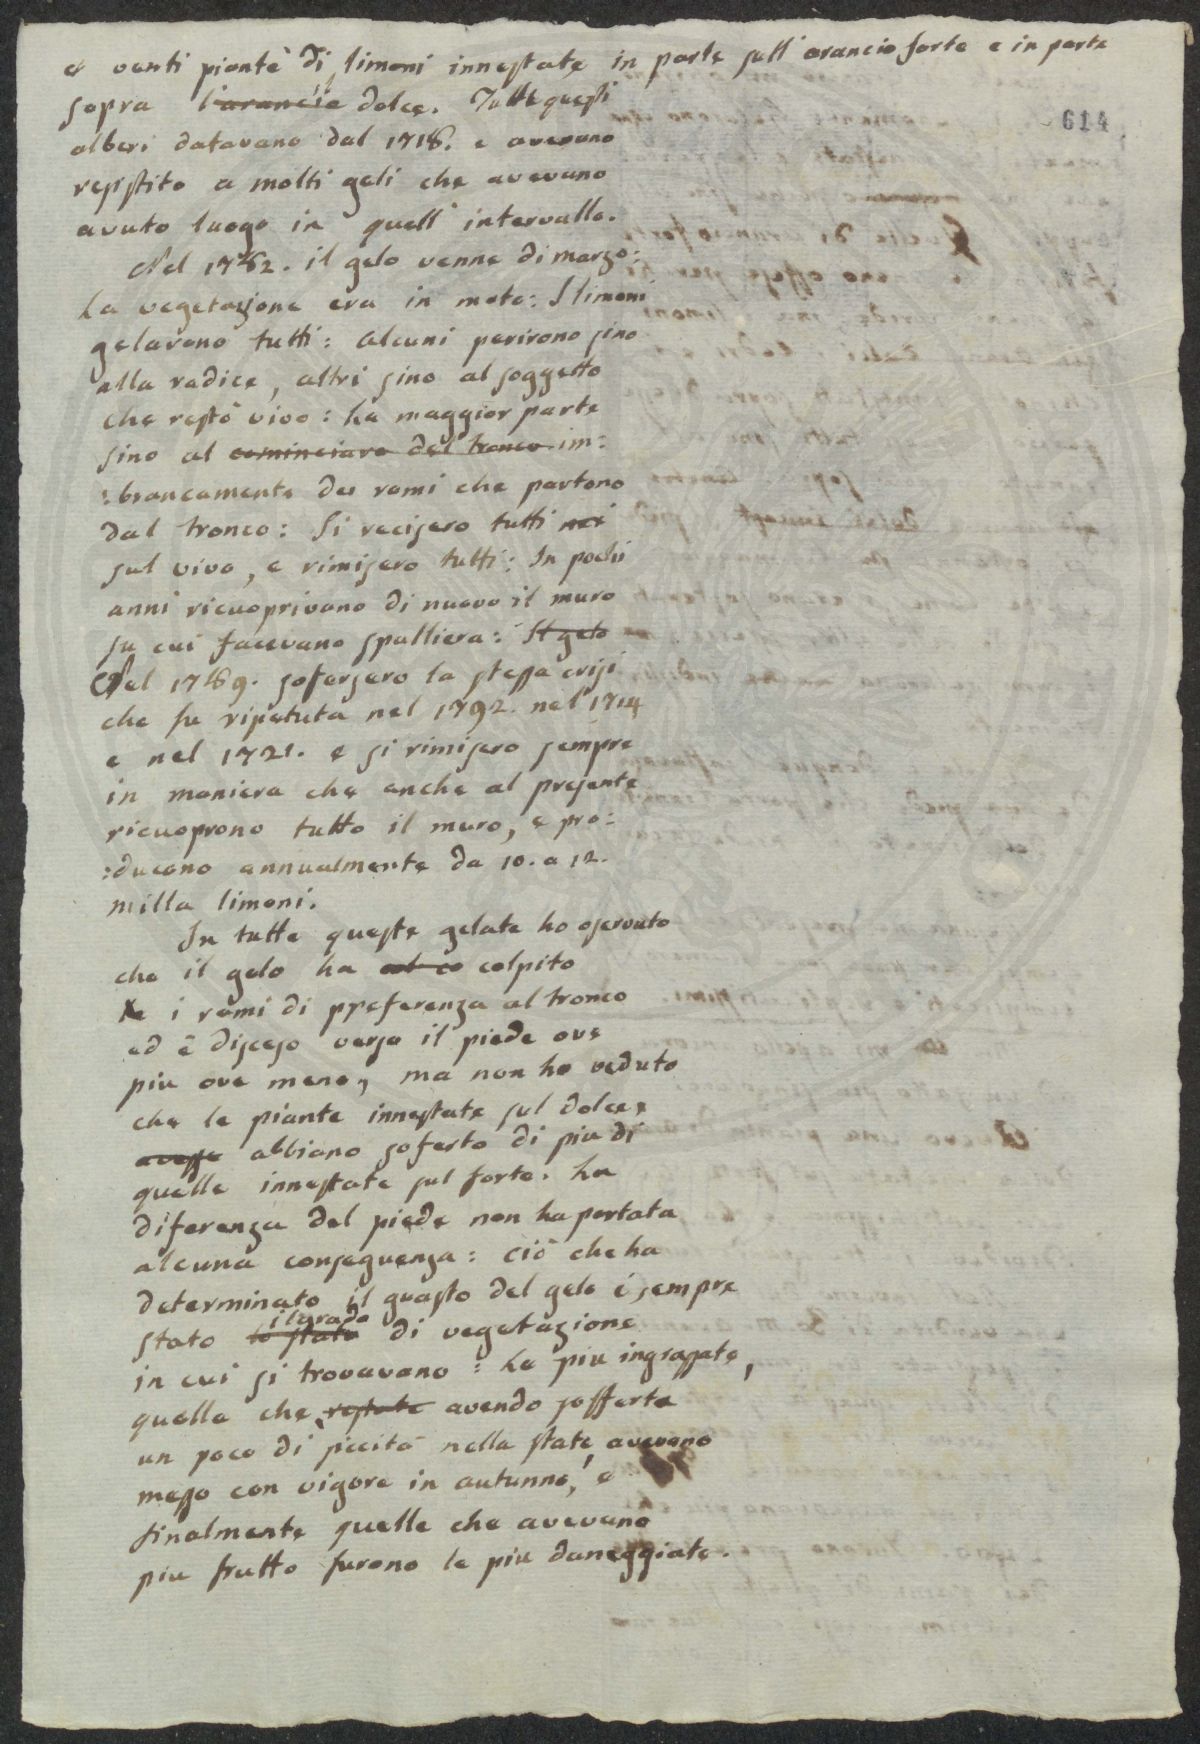 e venti piante di limoni innestate in parte sull' arancio forte e in parte
sopra l'arancio dolce. Tutti questi
614
alberi datavano dal 1718. e avevano
resistito a molti geli che avevano
avuto luogo in quell' intervallo.
Nel 1782. il gelo venne di marzo:
La vegetazione era in moto: I limoni
gelarono tutti: alcuni perirono sino
alla radice, altri sino al soggetto
che restò vivo: La maggior parte
sino al cominciare del tronco im:
:brancamento dei rami che partono
dal tronco: Si recisero tutti nei
sul vivo, e rimisero tutti: In pochi
anni ricuoprivano di nuovo il muro
su cui facevano spalliera: Il gelo
Nel 1789. sofersero la stessa crisi
che fu ripetuta nel 1792. nel 1714
e nel 1721. e si rimisero sempre
in maniera che anche al presente
ricuoprono tutto il muro, e pro:
:ducono annualmente da 10. a 12.
milla limoni.
In tutte queste gelate ho oservato
che il gelo ha col co colpito
le i rami di preferenza al tronco
ed è disceso verso il piede ove
piu ove meno, ma non ho veduto
che le piante innestate sul dolce
avesse abbiano soferto di piu di
quelle innestate sul forte. La
diferenza del piede non ha portata
alcuna conseguenza: ciò che ha
determinato il guasto del gelo è sempre
il grado
stato lo stato di vegetazione
in cui si trovavano: Le piu ingrassate,
quelle che restate avendo sofferto
un poco di siccità nella state, avevano
messo con vigore in autunno, e
finalmente quelle che avevano
piu frutto furono le piu daneggiate.